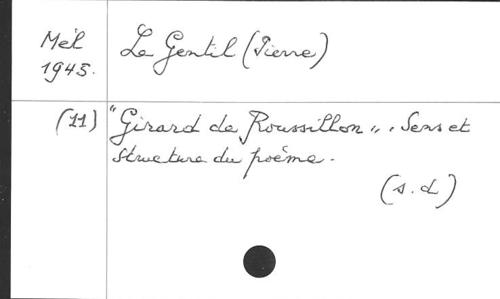 Mél
1945.
Le Gentil (Pierre)
(11)
"Girard de Roussillon", Sens et
structure du poème.
(s.d)